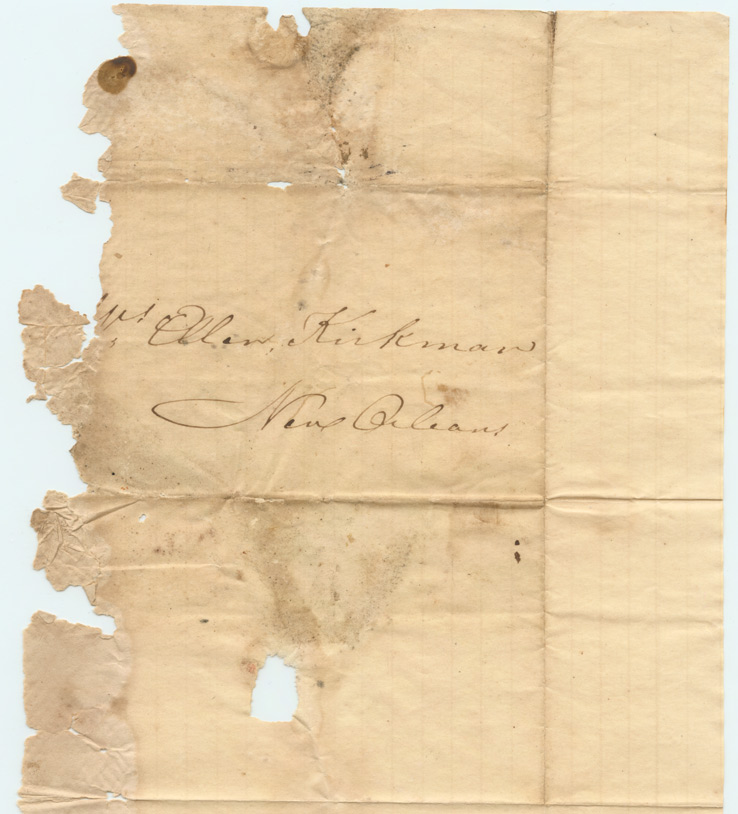 Ellen Kirkman
New Orleans